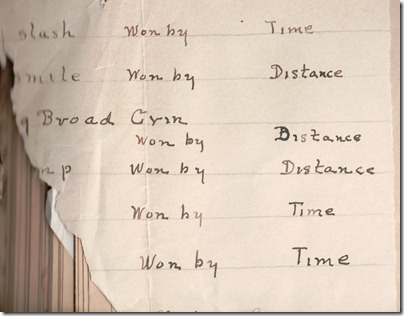 slash Won by Time
smile Won by Distance
g Broad Grin
Won by Distance
mp Won by Distance
Won by Time
Won by Time